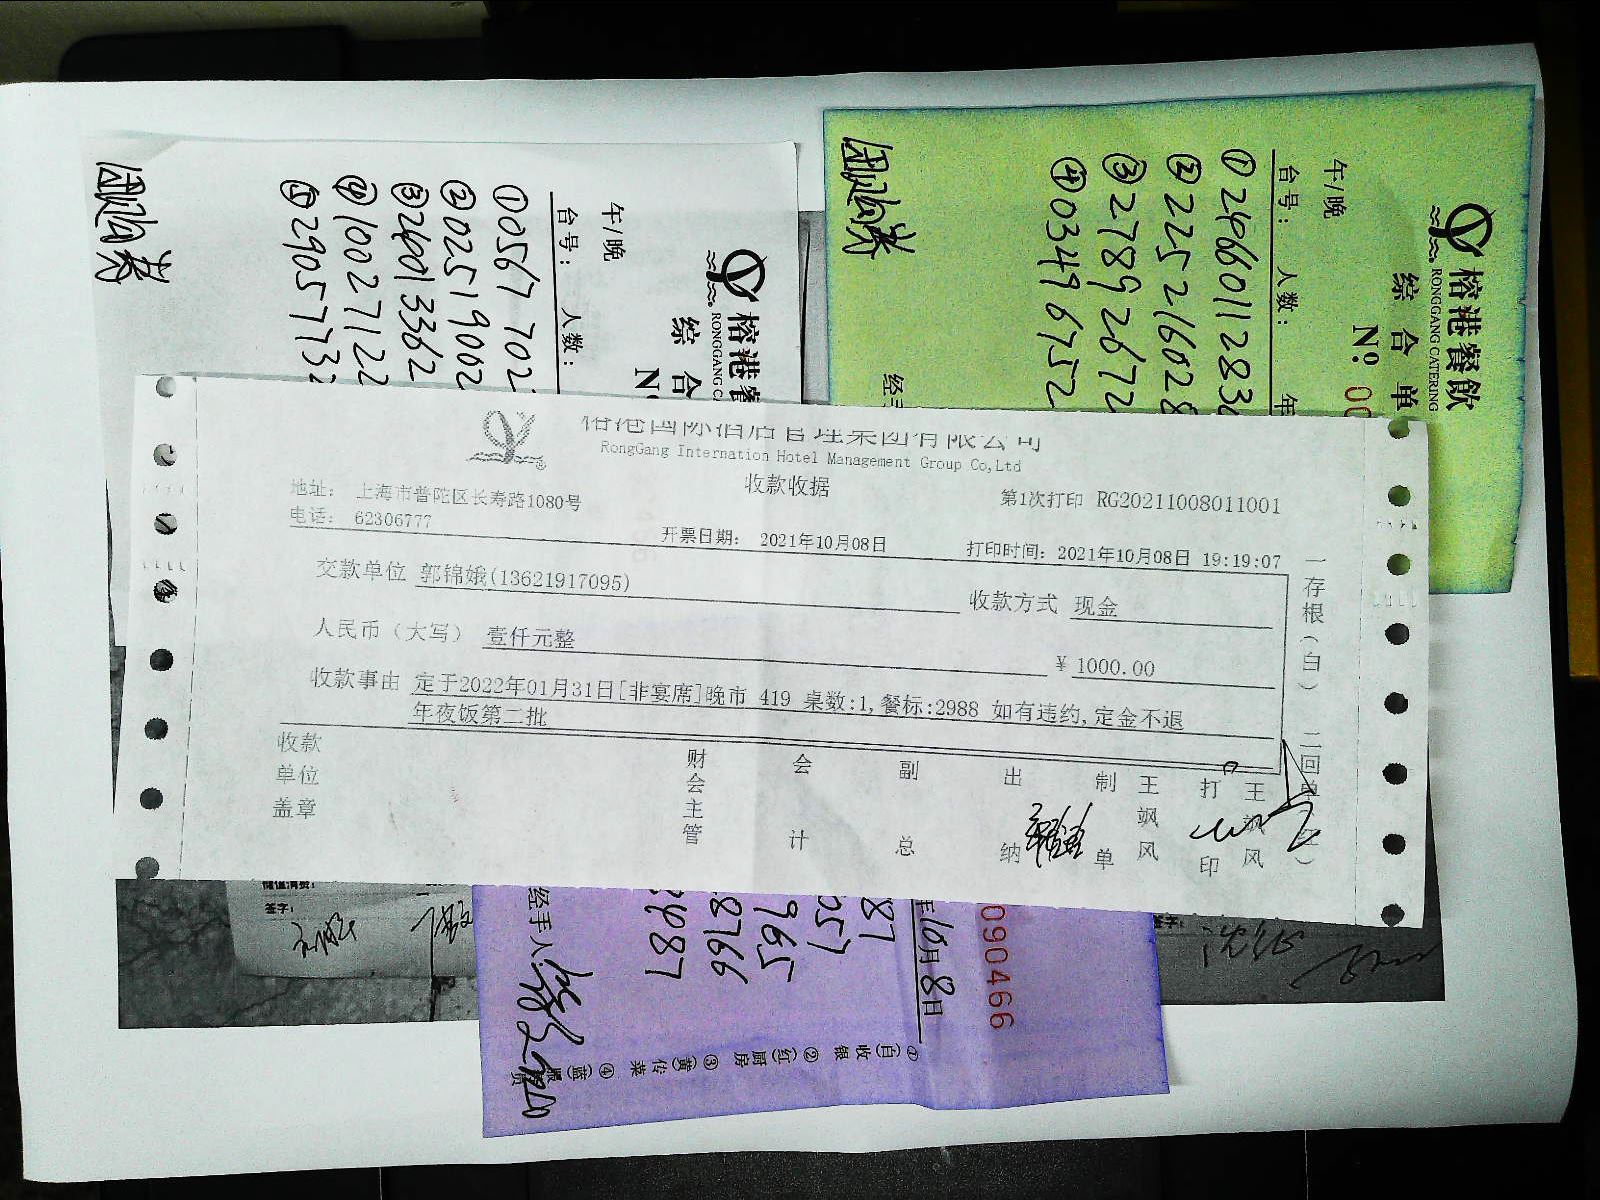 榕港国际酒店管理集团有限公司
RongGang Internation Hotel Management Group Co,Ltd
收款收据
地址: 上海市普陀区长寿路1080号
第1次打印 RG20211008011001
电话: 62306777
开票日期: 2021年10月08日
打印时间: 2021年10月08日 19:19:07
交款单位 郭锦娥(13621917095)
收款方式 现金
人民币(大写) 壹仟元整
¥ 1000.00
收款事由 定于2022年01月31日[非宴席]晚市 419 桌数:1,餐标:2988 如有违约,定金不退
年夜饭第二批
收款单位盖章
财会主管
会计
副总
出纳
制单
王飒风
打印
王飒风
一存根(白)
二回单
榕港餐飲
RONGGANG CATERING
综合单
No 00
午/晚
台号: 人数: 年
②225216028
③278926722
④03496752
团购券
榕港餐
RONGGANG C
综合
No
午/晚
台号: 人数:
①0567702
②02519002
③240013362
④10027122
⑤29057732
团购券
090466
年10月8日
87
057
965
8766
34087
经手人:
①(白)收银 ②(红)厨房 ③(黄)传菜 ④(蓝)
储值消费:
签字: